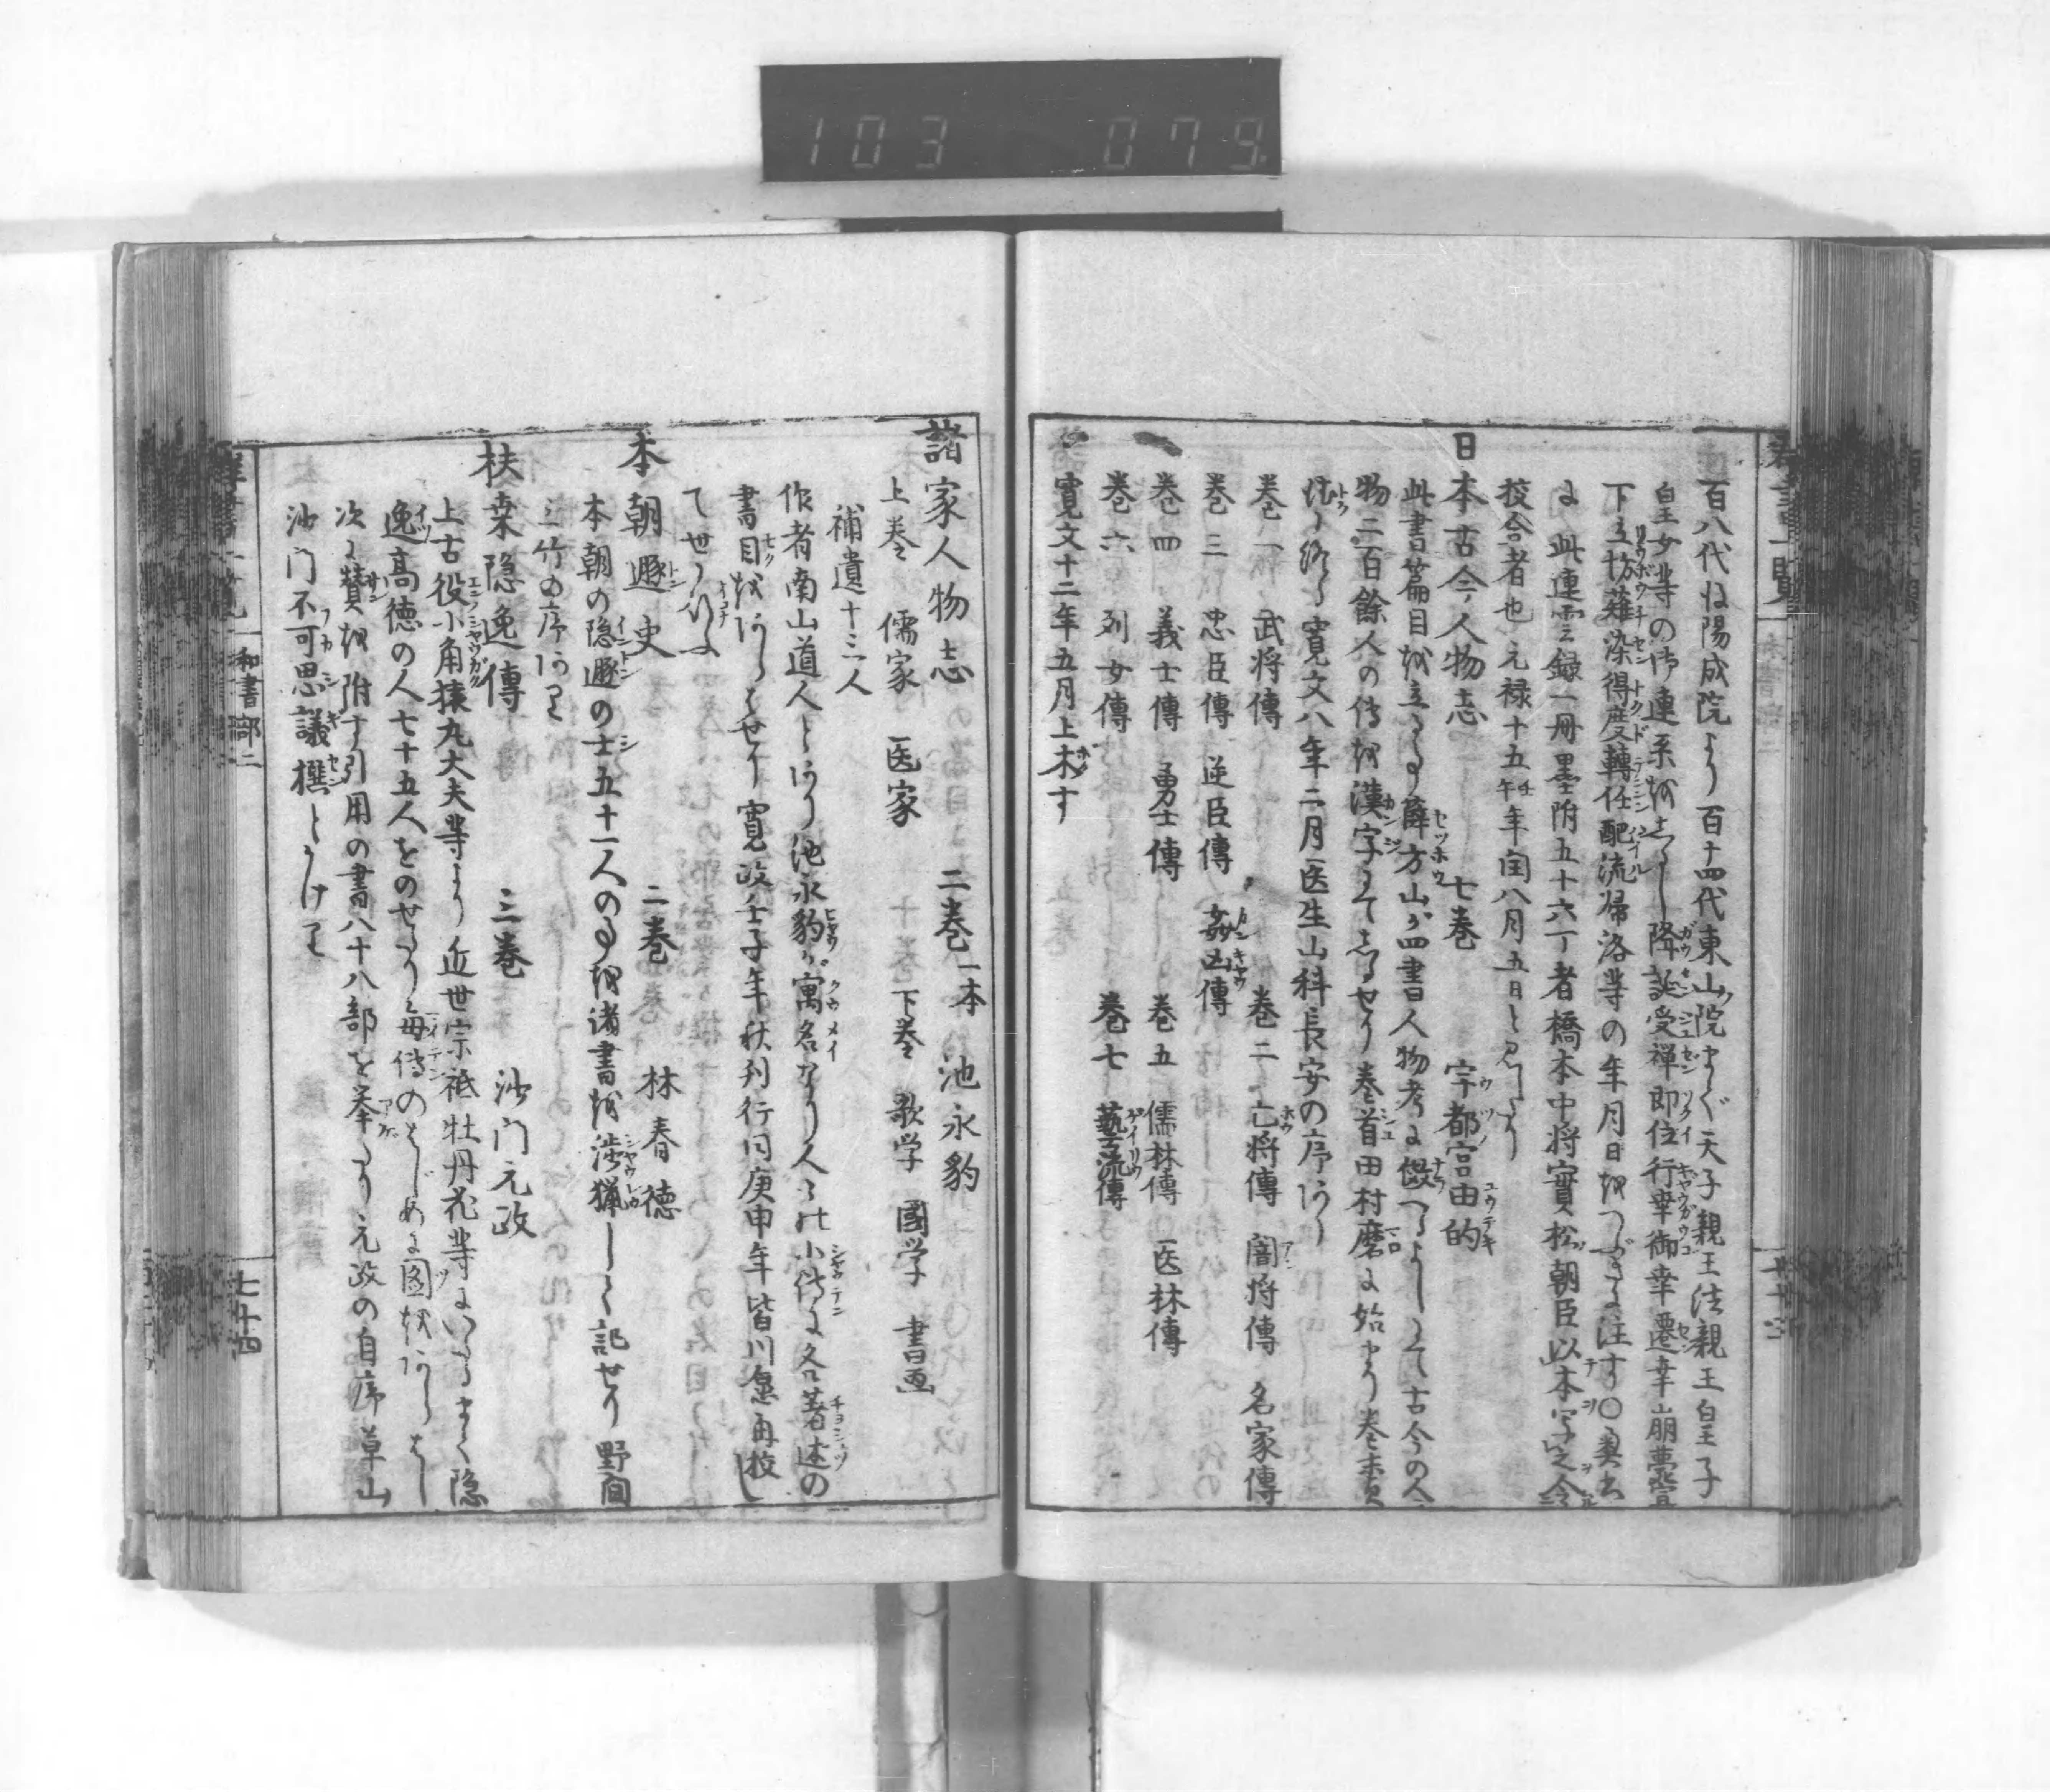 103 079
百八代後陽成院より百十四代東山院まで天子親王法親王皇子
皇女等の御連系をしるし降誕受禅即位行幸御幸遷幸崩薨
下立坊薙染得度轉任配流帰洛等の年月日をつぶさに注す〇奥書
に此連雲録一冊墨附五十六丁者橋本中将實松朝臣以本写之令
校合者也元禄十五壬午年閏八月五日と見へたり
日本古今人物志 七巻 宇都宮由的
此書篇目を立る事薛方山が四書人物考に傚へるよしにて古今の人
物二百餘人の傳を漢字にてしるせり巻首田村麿に始り巻末貞
徳に終る寛文八年二月医生山科長安の序あり
巻一 武将傳 巻二 亡将傳 闇将傳 名家傳
巻三 忠臣傳 逆臣傳 姦凶傳
巻四 義士傳 勇士傳 巻五 儒林傳 医林傳
巻六 列女傳 巻七 藝流傳
寛文十二年五月上木す
諸家人物志 二巻一本 池永豹
上巻 儒家 医家 下巻 歌学 國学 書画
補遺十三人
作者南山道人とあり池永豹が寓名なり人々の小傳に各著述の
書目をあらはせり寛政壬子年秋刋行同庚申年皆川愿再校し
て世に行ふ
本朝遯史 二巻 林春徳
本朝の隠遯の士五十一人の事を諸書を渉猟して記せり野間
三竹の序あり
扶桒隠逸傳 三巻 沙門元政
上古役小角猿丸大夫等より近世宗祗牡丹花等にいたるまで隠
逸高徳の人七十五人をのせたり毎傳のはじめに図をあらはし
次に賛を附す引用の書八十八部を挙たり元政の自序草山
沙門不可思議撰とかけり
和書部二
七十四